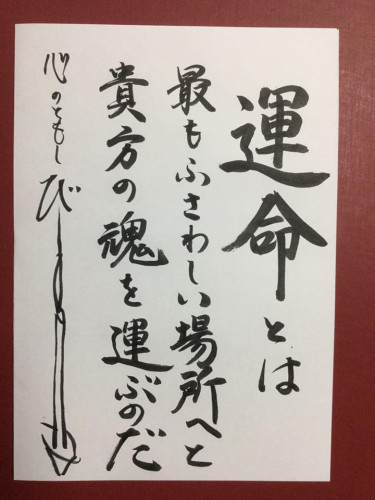 運命とは
最もふさわしい場所へと
貴方の魂を運ぶのだ
心のともし び